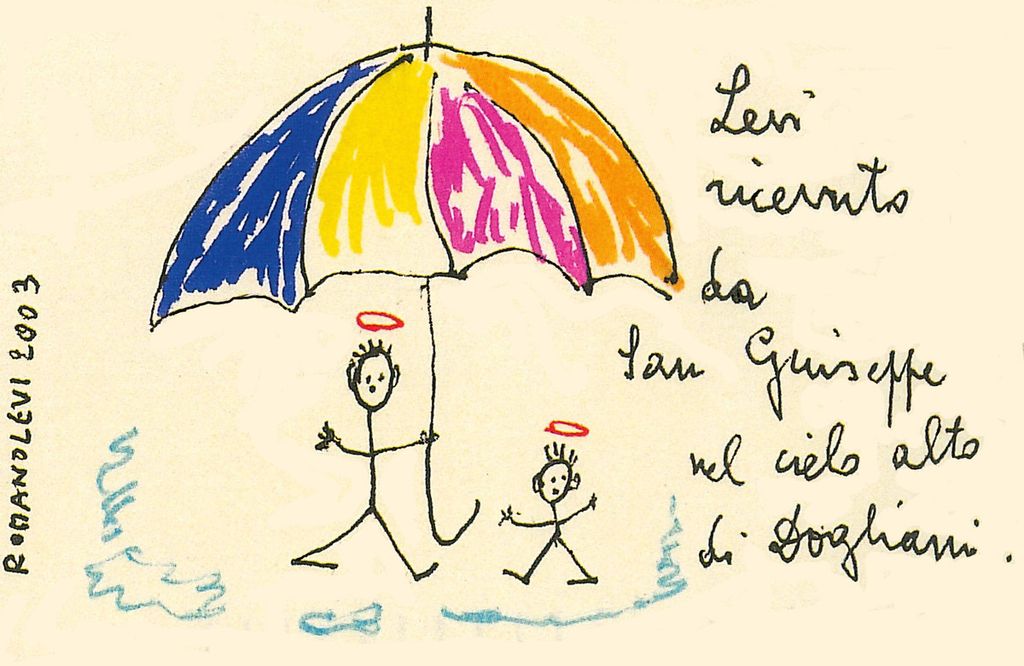 Levi
ricevuto
da
San Giuseppe
nel cielo alto
di Dogliani.
ROMANOLEVI 2003